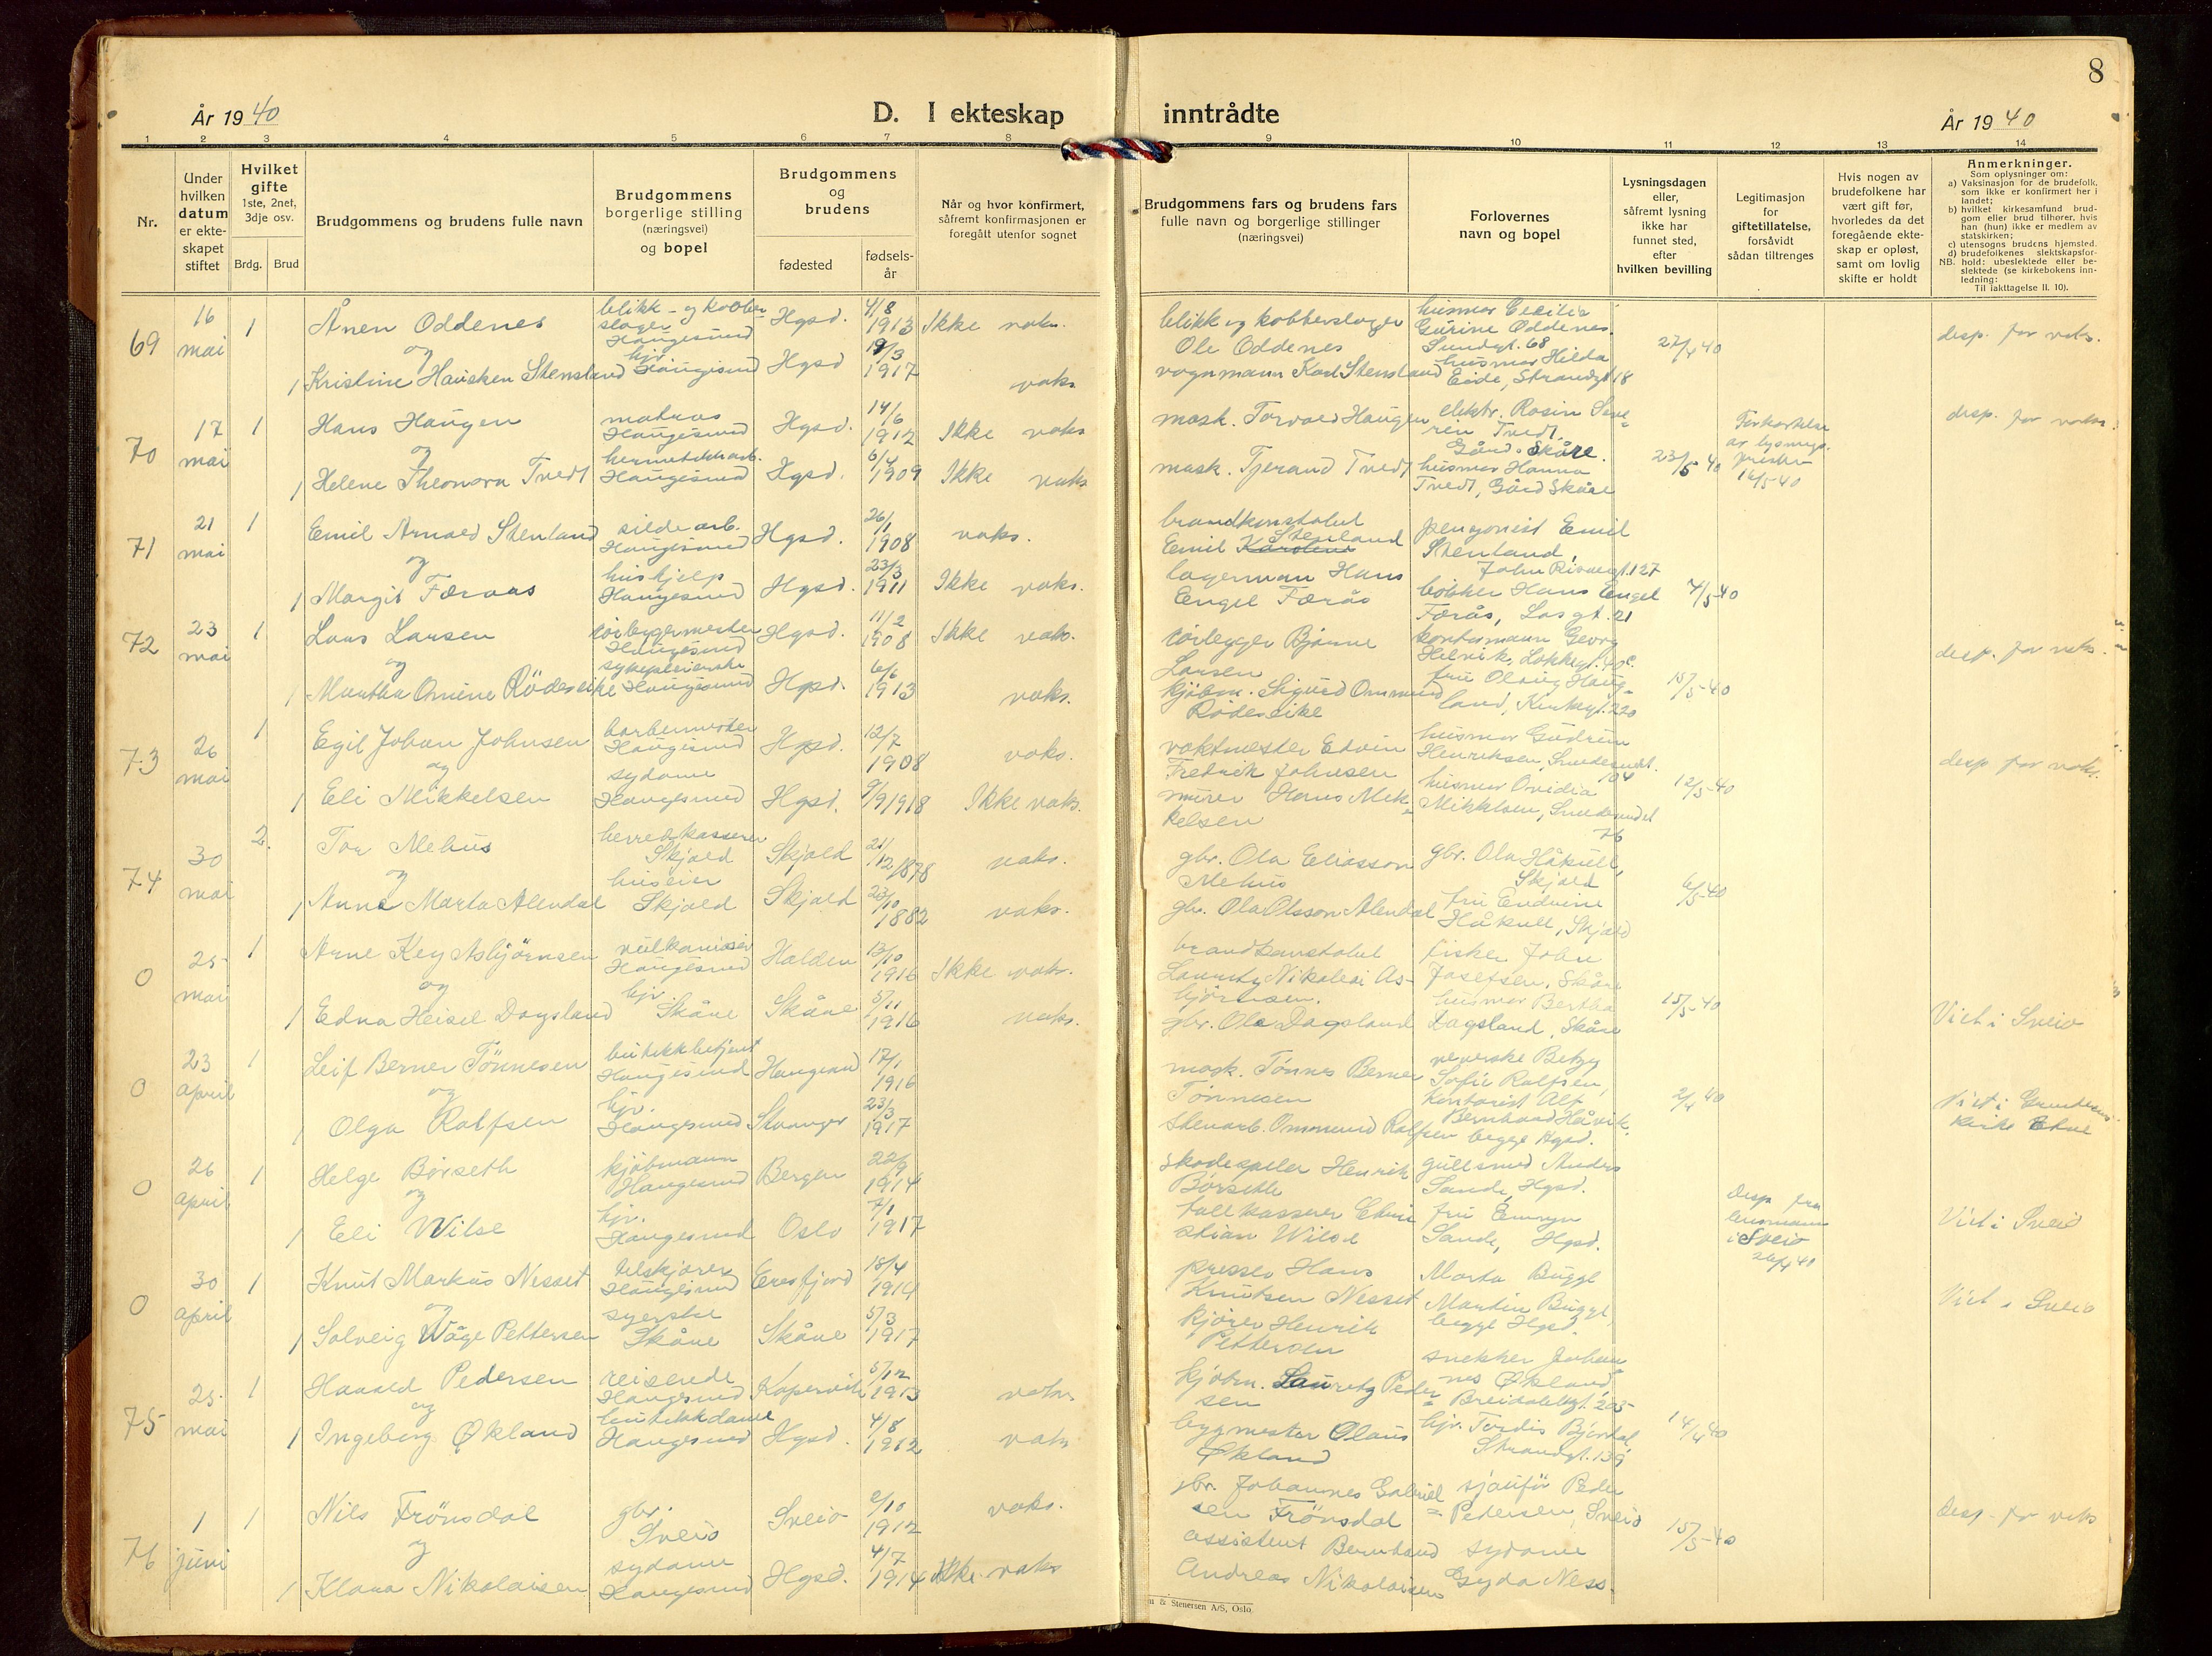 8
År 1940
D. I ekteskap inntrådte
År 1940
1 2 3 4 5 6 7 8 9 10 11 12 13 14
Nr.
Under hvilken datum er ekteskapet stiftet
Hvilket gifte 1ste, 2net, 3dje osv.
Brdg. Brud
Brudgommens og brudens fulle navn
Brudgommens borgerlige stilling (næringsvei) og bopel
Brudgommens og brudens
fødested
fødsels-år
Når og hvor konfirmert, såfremt konfirmasjonen er foregått utenfor sognet
Brudgommens fars og brudens fars fulle navn og borgerlige stillinger (næringsvei)
Forlovernes navn og bopel
Lysningsdagen eller, såfremt lysning ikke har funnet sted, efter hvilken bevilling
Legitimasjon for giftetillatelse, forsåvidt sådan tiltrenges
Hvis nogen av brudefolkene har vært gift før, hvorledes da det foregående ekteskap er opløst, samt om lovlig skifte er holdt
Anmerkninger.
Som oplysninger om:
a) Vaksinasjon for de brudefolk, som ikke er konfirmert her i landet;
b) hvilket kirkesamfund brudgom eller brud tilhører, hvis han (hun) ikke er medlem av statskirken;
c) utensogns brudens hjemsted.
d) brudefolkenes slektskapsforhold: ubeslektede eller beslektede (se kirkebokens innledning:
NB.
Til iakttagelse II. 10).
69 16 mai 1 Ånen Oddenes blikk- og kobberslager Haugesund Hgsd. 4/8 1913 Ikke vaks. blikk og kobberslager Ole Oddenes husmor Cecilie Gurine Oddenes. Sundgt. 68 27/4 40 desp. for vaks.
og
1 Kristine Hausken Stensland hjv. Haugesund Hgsd 19/3 1917 vaks vognmann Karl Stensland husmor Hilda Eide, Strandgt 18
70 17 mai 1 Hans Haugen matros Haugesund Hgsd. 14/6 1912 Ikke vaks mask. Torvald Haugen elektr. Rasin Severin Tvedt, Gård Skåre. 23/5 40 Forkortelse av lysnings 16/5 40 desp. for vaks.
og
1 Helene Theonora Tvedt hermetikkarb. Haugesund Hgsd. 6/4 1909 Ikke vaks mask. Tjerand Tvedt husmor Hanna Tvedt, Gård Skåre
71 21 mai 1 Emil Arnold Stenland sildearb. Haugesund Hgsd. 26/1 1908 vaks. brandkonstabel Emil Karoline Stenland pensjonist Emil Stenland, John Rivaregt. 127
og
1 Margit Færaas hushjelp Haugesund Hgsd. 23/3 1911 Ikke vaks. lagerman Hans Engel Færås bøkker Hans Engel Færås, Lars gt. 21 7/5-40
72 23 mai 1 Lars Larsen rørleggermester Haugesund Hgsd. 11/2 1908 Ikke vaks. rørlegger Bjarne Larsen kontormann Georg Helvik, Løkkegt. 40c. desp. for vaks.
og
1 Martha Omine Rödeseike sykepleierske Haugesund Hgsd. 6/6 1913 vaks. kjøbm. Sigurd Ommund Rödeseike fru Olaug Haugland, Kirkegt. 220 15/5-40
73 26 mai 1 Egil Johan Johnsen barbermester Haugesund Hgsd. 12/7 1908 vaks. vaktmester Edvin Fredrik Johnsen husmor Gudrun Henriksen, Smedesundet. 104 desp for vaks.
og
1 Eli Mikkelsen sydame Haugesund Hgsd. 9/9 1918 Ikke vaks. murer Hans Mikkelsen husmor Ovidia Mikkelsen, Smedesundet 76 12/5-40
74 30 mai 2. Tor Mehus herredskasserer Skjold Skjold 21/12 1878 vaks. gbr. Ola Eliasson Mehus gbr. Ola Håkull, Skjold 6/5-40
og
1 Anne Marta Alendal huseier Skjold Skjold 23/10 1882 vaks. gbr. Ola Olsson Alendal fru Endrine Håkull, Skjold
0 25 mai 1 Arne Key Asbjørnsen vulkanisør Haugesund Halden 13/10 1916 Ikke vaks. brandkonstabel Nikolai Asbjørnsen. fisker John Josefsen, Skåre
og
1 Edna Heisel Dagsland hjv. Skåre Skåre 5/11 1916 vaks. gbr. Ole Dagsland husmor Bertha Dagsland, Skåre 15/5-40 Viet i Sveio
0 23 april 1 Leif Berner Tönnesen butikkbetjent Haugesund Haugesund 17/1 1916 mask. Tönnes Berner Tönnesen Betzy Sofie Rolfsen, 2/4 40 Viet i kirke Etne
og
1 Olga Rolfsen hjv. Haugesund Stavanger 23/3 1917 stenarb. Ommund Rolfsen kontorist Alf Bernhard Håvik. begge Hgsd.
0 26 april 1 Helge Børseth kjøbmann Haugesund Bergen 22/9 1914 skodespeler Henrik Børseth gullsmed Anders Sande, Hgsd. Desp. fra lensmann i Sveio 26/4 40 Viet i Sveio
og
1 Eli Wilse hjv. Haugesund Oslo 7/1 1917 tollkasserer Christian Wilse fru Sande, Hgsd.
0 30 april 1 Knut Markus Nesset tilskjærer Haugesund Eresfjord 15/4 1914 presser Hans Knutsen Nesset Marta Bugge Martin Bugge, begge Hgsd. Viet i Sveio
og
1 Solveig Våge Pettersen syerske Skåre Skåre 5/3 1917 kjører Henrik Pettersen
75 25. mai 1 Harald Pedersen reisende Haugesund Kopervik 5/12 1913 vaks kjøbm. Lauretz Pedersen snekker Johannes Økland, Breidablikgt. 205
og
1 Ingeborg Økland butikkdame Haugesund Hgsd. 4/8 1912 vaks bygmester Olaus Økland hjv. Tordis Bjørdal, Strandgt. 139 14/4 40
76 1 juni 1 Nils Frönsdal gbr. Sveio Sveio 2/10 1912 vaks. gbr. Johannes Gabrielsen Frönsdal sjaufør Peder Pedersen, Sveio 15/5-40 Desp. for vaks
og
1 Klara Nikolaisen sydame Haugesund Hgsd. 4/7 1914 Ikke vaks assistent Bernhard Andreas Nikolaisen sydame Gyda Ness.
& Stenersen A/S, Oslo